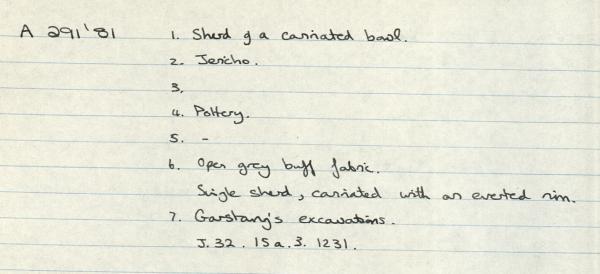 A 291'81 1. Sherd of a carinated bowl.
2. Jericho.
3.
4. Pottery.
5. -
6. Open grey buff fabric.
Single sherd, carinated with an everted rim.
7. Garstang's excavations.
J. 32. 15a. 3. 1231.